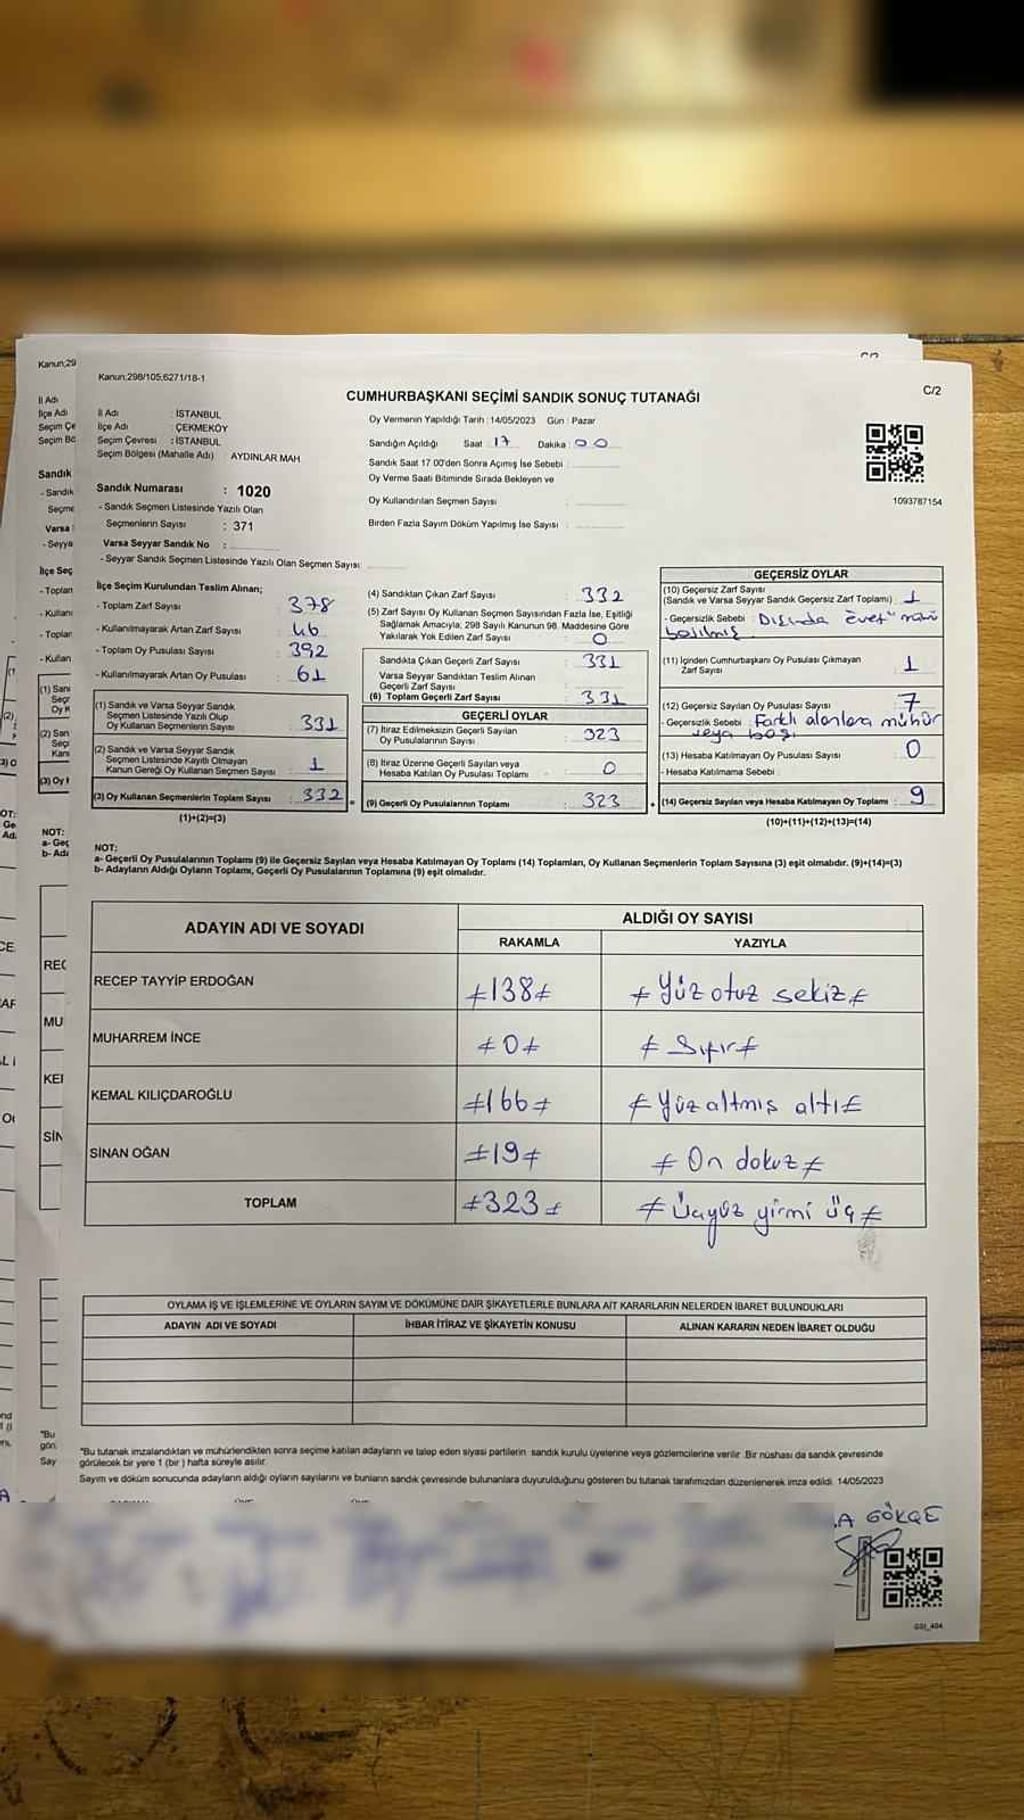 Kanun;298/105;6271/18-1
C/2
CUMHURBAŞKANI SEÇİMİ SANDIK SONUÇ TUTANAĞI
İl Adı : İSTANBUL
İlçe Adı : ÇEKMEKÖY
Seçim Çevresi : İSTANBUL
Seçim Bölgesi (Mahalle Adı) AYDINLAR MAH
Sandık Numarası : 1020
- Sandık Seçmen Listesinde Yazılı Olan
Seçmenlerin Sayısı : 371
Varsa Seyyar Sandık No :
- Seyyar Sandık Seçmen Listesinde Yazılı Olan Seçmen Sayısı:
Oy Vermenin Yapıldığı Tarih : 14/05/2023 Gün : Pazar
Sandığın Açıldığı Saat : 17 Dakika : 00
Sandık Saat 17 00'den Sonra Açmış İse Sebebi :
Oy Verme Saati Bitiminde Sırada Bekleyen ve
Oy Kullandırılan Seçmen Sayısı :
Birden Fazla Sayım Döküm Yapılmış İse Sayısı :
1093787154
İlçe Seçim Kurulundan Teslim Alınan;
- Toplam Zarf Sayısı : 378
- Kullanılmayarak Artan Zarf Sayısı : 46
- Toplam Oy Pusulası Sayısı : 392
- Kullanılmayarak Artan Oy Pusulası : 61
(1) Sandık ve Varsa Seyyar Sandık
Seçmen Listesinde Yazılı Olup
Oy Kullanan Seçmenlerin Sayısı : 331
(2) Sandık ve Varsa Seyyar Sandık
Seçmen Listesinde Kayıtlı Olmayan
Kanun Gereği Oy Kullanan Seçmen Sayısı : 1
(3) Oy Kullanan Seçmenlerin Toplam Sayısı : 332
(1)+(2)=(3)
(4) Sandıktan Çıkan Zarf Sayısı : 332
(5) Zarf Sayısı Oy Kullanan Seçmen Sayısından Fazla İse, Eşitliği
Sağlamak Amacıyla; 298 Sayılı Kanunun 98. Maddesine Göre
Yakılarak Yok Edilen Zarf Sayısı : 0
Sandıkta Çıkan Geçerli Zarf Sayısı : 331
Varsa Seyyar Sandıktan Teslim Alınan
Geçerli Zarf Sayısı :
(6) Toplam Geçerli Zarf Sayısı : 331
GEÇERLİ OYLAR
(7) İtiraz Edilmeksizin Geçerli Sayılan
Oy Pusulalarının Sayısı : 323
(8) İtiraz Üzerine Geçerli Sayılan veya
Hesaba Katılan Oy Pusulası Toplamı : 0
(9) Geçerli Oy Pusulalarının Toplamı : 323
GEÇERSİZ OYLAR
(10) Geçersiz Zarf Sayısı
(Sandık ve Varsa Seyyar Sandık Geçersiz Zarf Toplamı) : 1
- Geçersizlik Sebebi : Dışında evet"
basılmış
(11) İçinden Cumhurbaşkanı Oy Pusulası Çıkmayan
Zarf Sayısı : 1
(12) Geçersiz Sayılan Oy Pusulası Sayısı : 7
- Geçersizlik Sebebi : Farklı alanlara mühür
veya boş
(13) Hesaba Katılmayan Oy Pusulası Sayısı : 0
- Hesaba Katılmama Sebebi :
(14) Geçersiz Sayılan veya Hesaba Katılmayan Oy Toplamı : 9
(10)+(11)+(12)+(13)=(14)
NOT:
a- Geçerli Oy Pusulalarının Toplamı (9) ile Geçersiz Sayılan veya Hesaba Katılmayan Oy Toplamı (14) Toplamları, Oy Kullanan Seçmenlerin Toplam Sayısına (3) eşit olmalıdır. (9)+(14)=(3)
b- Adayların Aldığı Oyların Toplamı, Geçerli Oy Pusulalarının Toplamına (9) eşit olmalıdır.
ADAYIN ADI VE SOYADI
ALDIĞI OY SAYISI
RAKAMLA YAZIYLA
RECEP TAYYİP ERDOĞAN ≠138≠ ≠ Yüz otuz sekiz ≠
MUHARREM İNCE ≠0≠ ≠ Sıfır ≠
KEMAL KILIÇDAROĞLU ≠166≠ ≠ Yüz altmış altı ≠
SİNAN OĞAN ≠19≠ ≠ On dokuz ≠
TOPLAM ≠323≠ ≠ Üçyüz yirmi üç ≠
OYLAMA İŞ VE İŞLEMLERİNE VE OYLARIN SAYIM VE DÖKÜMÜNE DAİR ŞİKAYETLERLE BUNLARA AİT KARARLARIN NELERDEN İBARET BULUNDUKLARI
ADAYIN ADI VE SOYADI İHBAR İTİRAZ VE ŞİKAYETİN KONUSU ALINAN KARARIN NEDEN İBARET OLDUĞU
"Bu tutanak imzalandıktan ve mühürlendikten sonra seçime katılan adayların ve talep eden siyasi partilerin sandık kurulu üyelerine veya gözlemcilerine verilir. Bir nüshası da sandık çevresinde
görülecek bir yere 1 (bir) hafta süreyle asılır.
Sayım ve döküm sonucunda adayların aldığı oyların sayılarını ve bunların sandık çevresinde bulunanlara duyurulduğunu gösteren bu tutanak tarafımızdan düzenlenerek imza edildi. 14/05/2023
A GÖKÇE